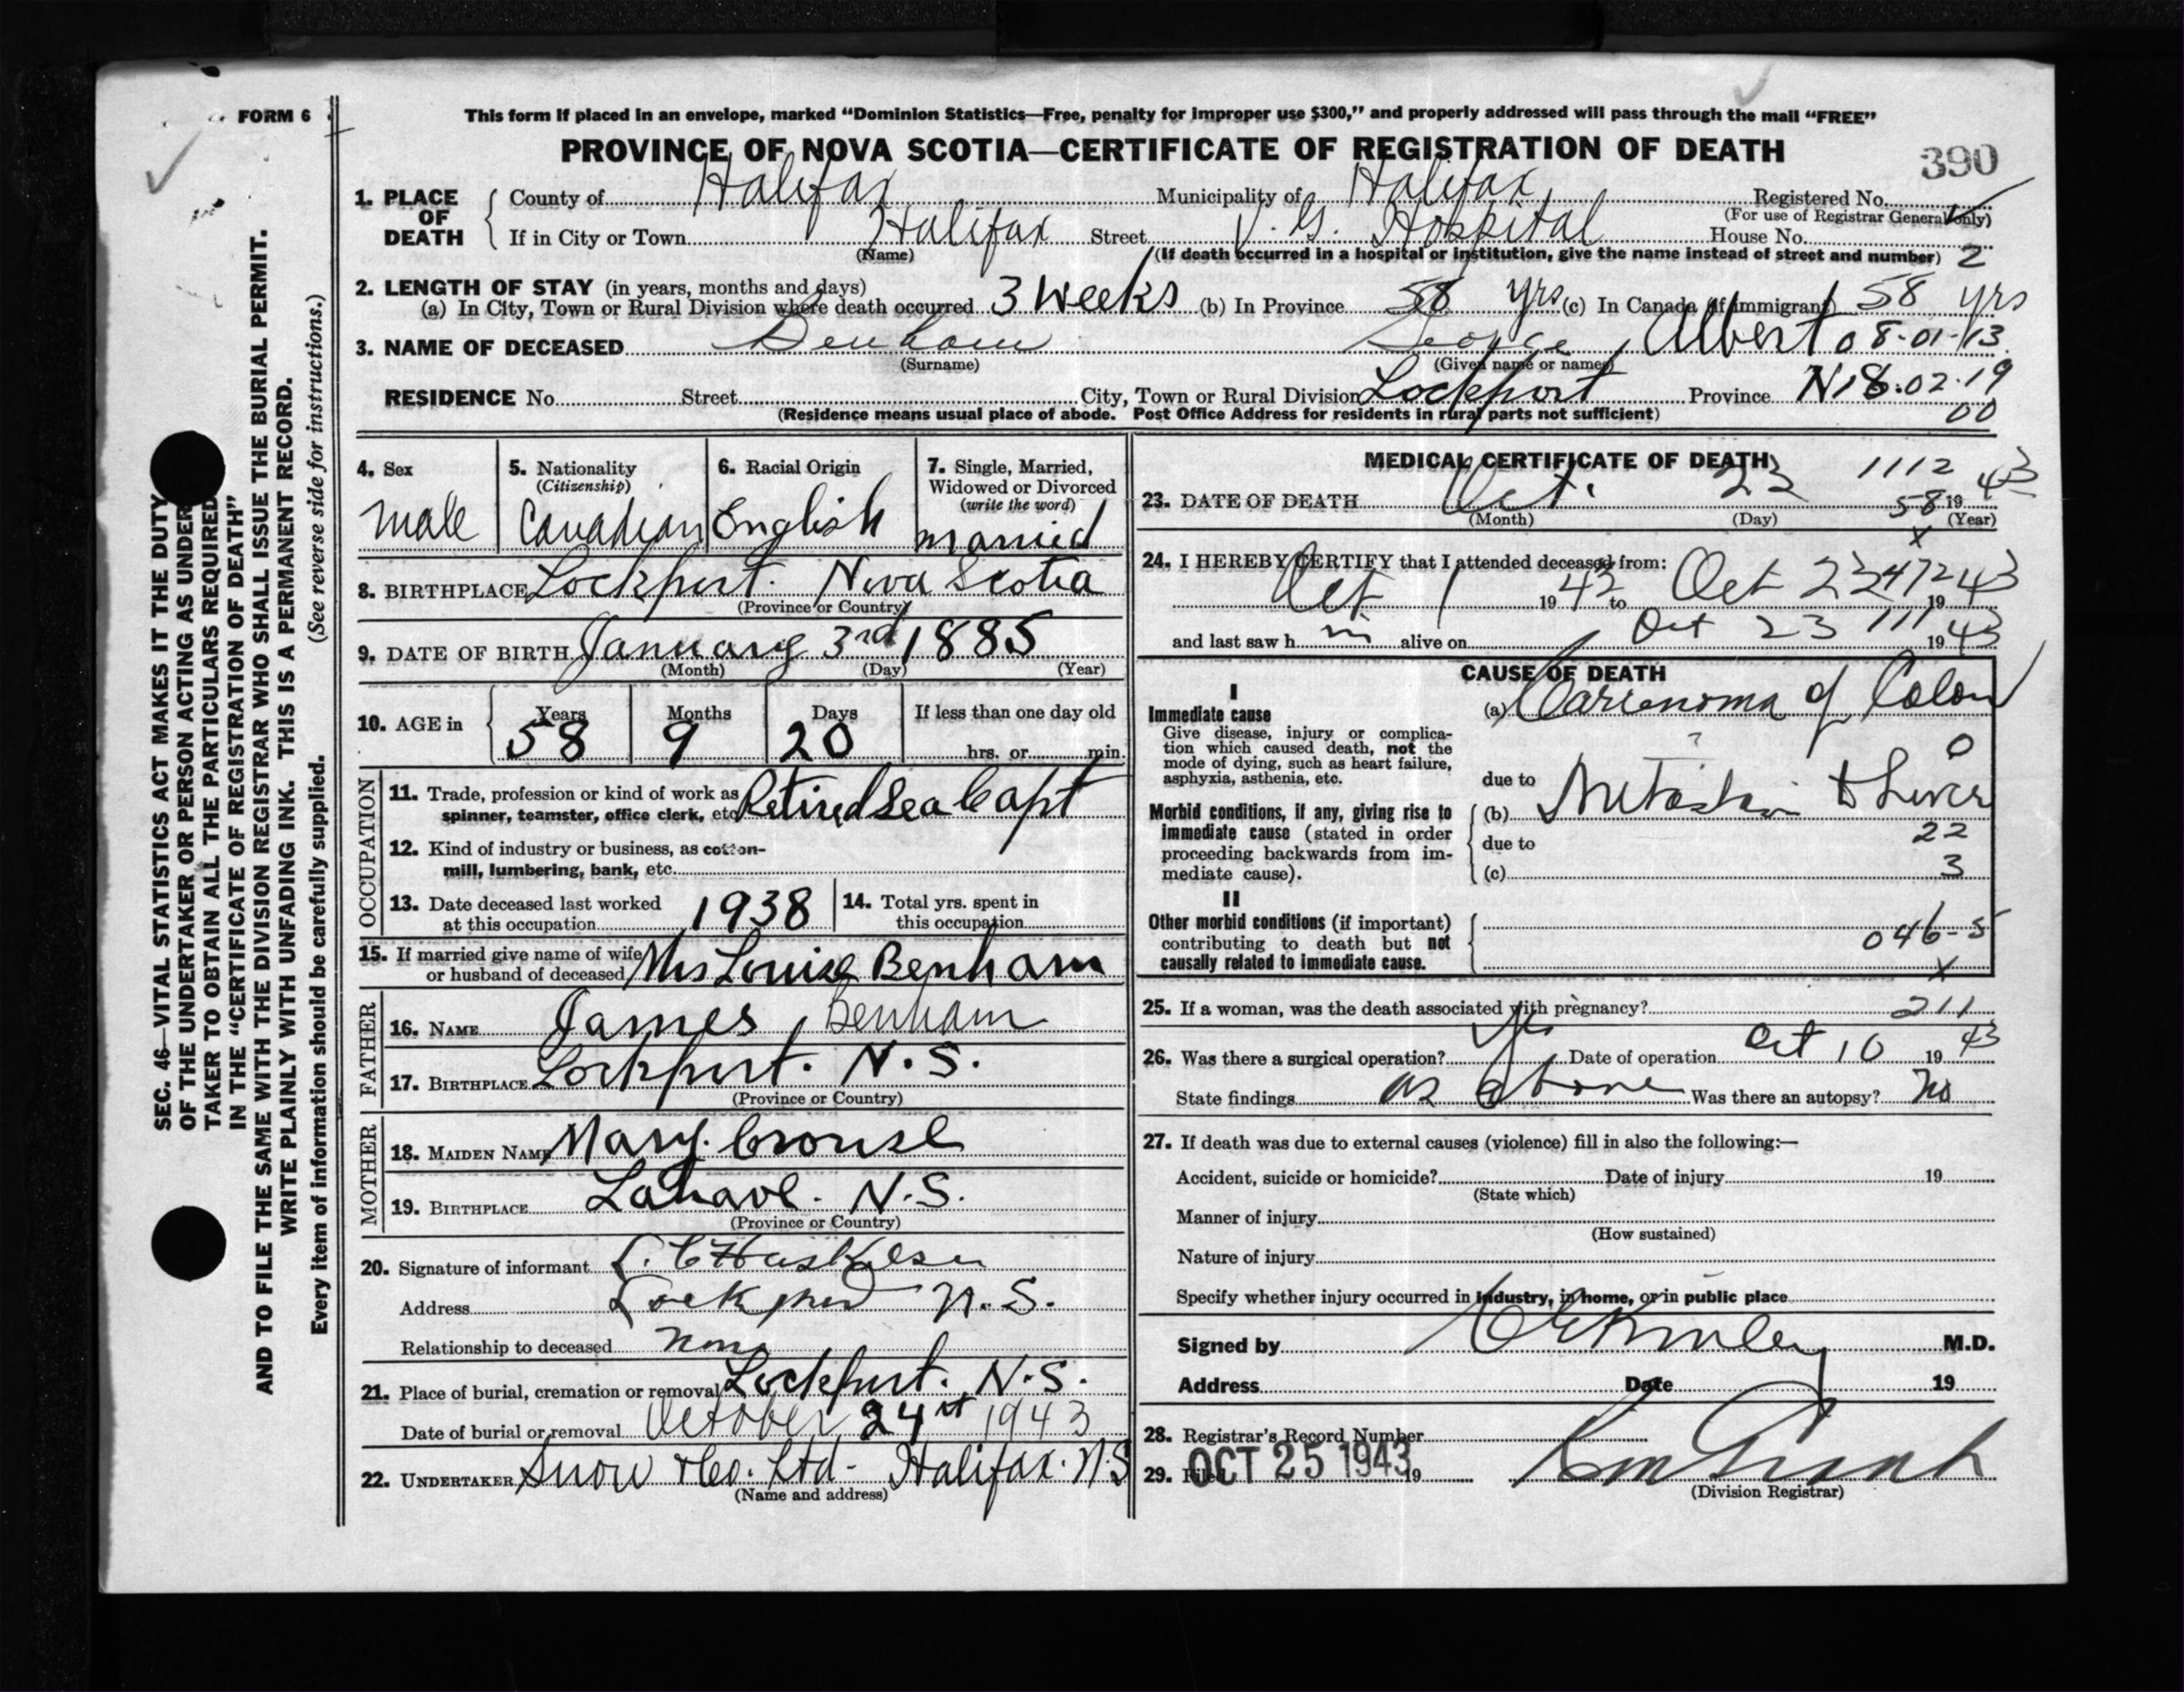 FORM 6
This form if placed in an envelope, marked “Dominion Statistics—Free, penalty for improper use $300,” and properly addressed will pass through the mail “FREE”
PROVINCE OF NOVA SCOTIA—CERTIFICATE OF REGISTRATION OF DEATH
390
1. PLACE OF DEATH
County of Halifax Municipality of Halifax Registered No.
(For use of Registrar General only)
If in City or Town Halifax Street V. G. Hospital House No.
(Name) (If death occurred in a hospital or institution, give the name instead of street and number) 2
2. LENGTH OF STAY (in years, months and days)
(a) In City, Town or Rural Division where death occurred 3 Weeks (b) In Province 58 yrs (c) In Canada (if immigrant) 58 yrs
3. NAME OF DECEASED Benham George Albert 08-01-13
(Surname) (Given name or names)
RESIDENCE No. Street City, Town or Rural Division Lockport Province N 18.02.19
(Residence means usual place of abode. Post Office Address for residents in rural parts not sufficient) 00
4. Sex
male
5. Nationality
(Citizenship)
Canadian
6. Racial Origin
English
7. Single, Married,
Widowed or Divorced
(write the word)
married
8. BIRTHPLACE Lockport. Nova Scotia
(Province or Country)
9. DATE OF BIRTH January 3rd 1885
(Month) (Day) (Year)
10. AGE in Years Months Days If less than one day old
58 9 20 hrs. or min.
OCCUPATION
11. Trade, profession or kind of work as
spinner, teamster, office clerk, etc. Retired Sea Capt
12. Kind of industry or business, as cotton-
mill, lumbering, bank, etc.
13. Date deceased last worked
at this occupation 1938
14. Total yrs. spent in
this occupation
15. If married give name of wife
or husband of deceased Mrs Louise Benham
FATHER
16. NAME James Benham
17. BIRTHPLACE Lockport. N.S.
(Province or Country)
MOTHER
18. MAIDEN NAME Mary Crouse
19. BIRTHPLACE Lahave. N.S.
(Province or Country)
20. Signature of informant
Address Lockport N.S.
Relationship to deceased None
21. Place of burial, cremation or removal Lockport. N.S.
Date of burial or removal October 24st 1943
22. UNDERTAKER Snow & Co. Ltd- Halifax. N.S
(Name and address)
MEDICAL CERTIFICATE OF DEATH
1112
23. DATE OF DEATH Oct. 23 58 19 43
(Month) (Day) (Year)
x
24. I HEREBY CERTIFY that I attended deceased from:
Oct 1 19 43 to Oct 23 472 19 43
and last saw h m alive on Oct 23 111 19 43
CAUSE OF DEATH
I
Immediate cause
Give disease, injury or complica-
tion which caused death, not the
mode of dying, such as heart failure,
asphyxia, asthenia, etc.
(a) Carcinoma of Colon
? 0
due to
Morbid conditions, if any, giving rise to
immediate cause (stated in order
proceeding backwards from im-
mediate cause).
(b) to Liver
due to 22
(c) 3
II
Other morbid conditions (if important)
contributing to death but not
causally related to immediate cause.
046-5
x
25. If a woman, was the death associated with pregnancy? 211
26. Was there a surgical operation? Yes Date of operation Oct 10 19 43
State findings as above Was there an autopsy? No
27. If death was due to external causes (violence) fill in also the following:—
Accident, suicide or homicide? Date of injury 19
(State which)
Manner of injury
(How sustained)
Nature of injury
Specify whether injury occurred in industry, in home, or in public place
Signed by M.D.
Address Date 19
28. Registrar's Record Number
29. Filed OCT 25 1943 19
(Division Registrar)
SEC. 46—VITAL STATISTICS ACT MAKES IT THE DUTY
OF THE UNDERTAKER OR PERSON ACTING AS UNDER
TAKER TO OBTAIN ALL THE PARTICULARS REQUIRED
IN THE “CERTIFICATE OF REGISTRATION OF DEATH”
AND TO FILE THE SAME WITH THE DIVISION REGISTRAR WHO SHALL ISSUE THE BURIAL PERMIT.
WRITE PLAINLY WITH UNFADING INK. THIS IS A PERMANENT RECORD.
Every item of information should be carefully supplied. (See reverse side for instructions.)